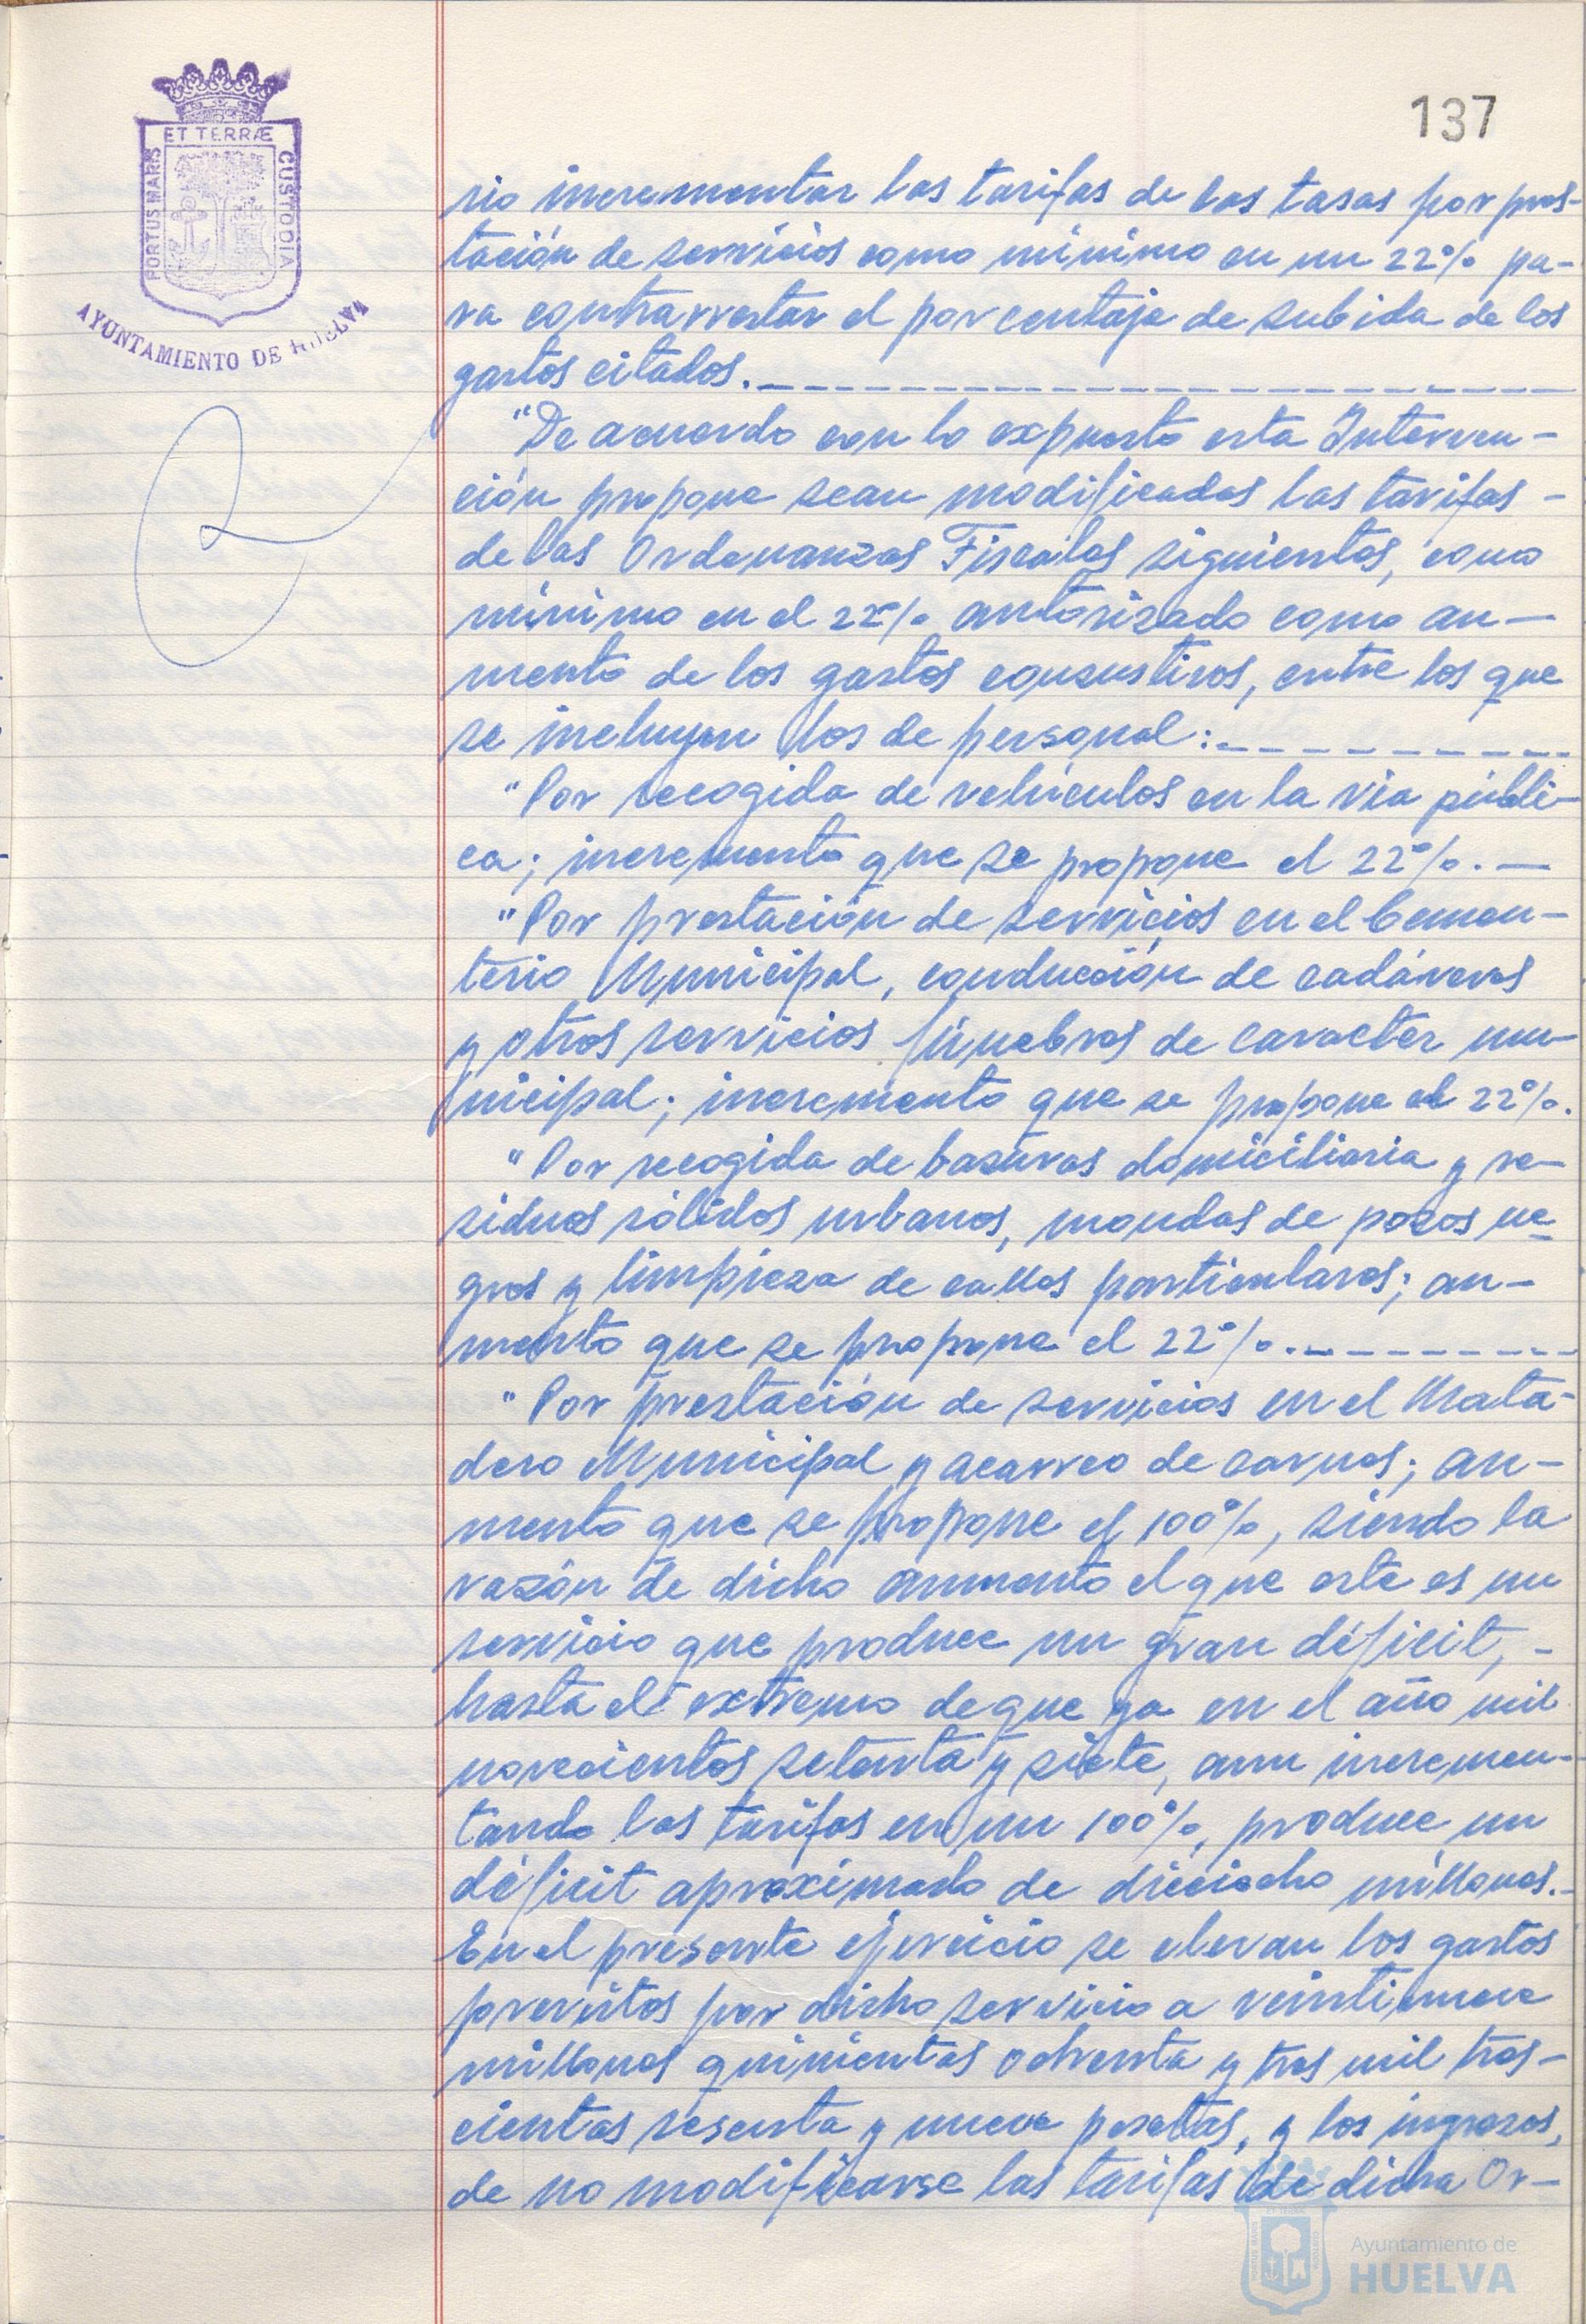 137
ET TERRÆ
PORTUS MARIS
CUSTODIA
AYUNTAMIENTO DE HUELVA
rio incrementar las tarifas de las tasas por pres-
tación de servicios como mínimo en un 22% pa-
ra contrarrestar el porcentaje de subida de los
gastos citados.
"De acuerdo con lo expuesto esta Interven-
ción propone sean modificadas las tarifas -
de las Ordenanzas Fiscales siguientes, como
mínimo en el 22% autorizado como au-
mento de los gastos consustivos, entre los que
se incluyen los de personal:
"Por recogida de vehículos en la vía públi-
ca; incremento que se propone el 22%. —
"Por prestación de servicios en el Cemen-
terio Municipal, conducción de cadáveres
y otros servicios fúnebres de caracter mu-
nicipal; incremento que se propone el 22%.
"Por recogida de basuras domiciliaria y re-
siduos sólidos urbanos, mondas de pozos ne-
gros y limpieza de calles particulares; au-
mento que se propone el 22%.
"Por prestación de servicios en el Mata-
dero Municipal y acarreo de carnes; au-
mento que se propone el 100%, siendo la
razón de dicho aumento el que este es un
servicio que produce un gran déficit, -
hasta el extremo de que ya en el año mil
novecientos setenta y siete, aun incremen-
tando las tarifas en un 100%, produce un
déficit aproximado de dieciocho millones.-
En el presente ejercicio se elevan los gastos
previstos por dicho servicio a veintinueve
millones quinientas ochenta y tres mil tres-
cientas sesenta y nueve pesetas, y los ingresos,
de no modificarse las tarifas de dicha Or-
Ayuntamiento de
HUELVA